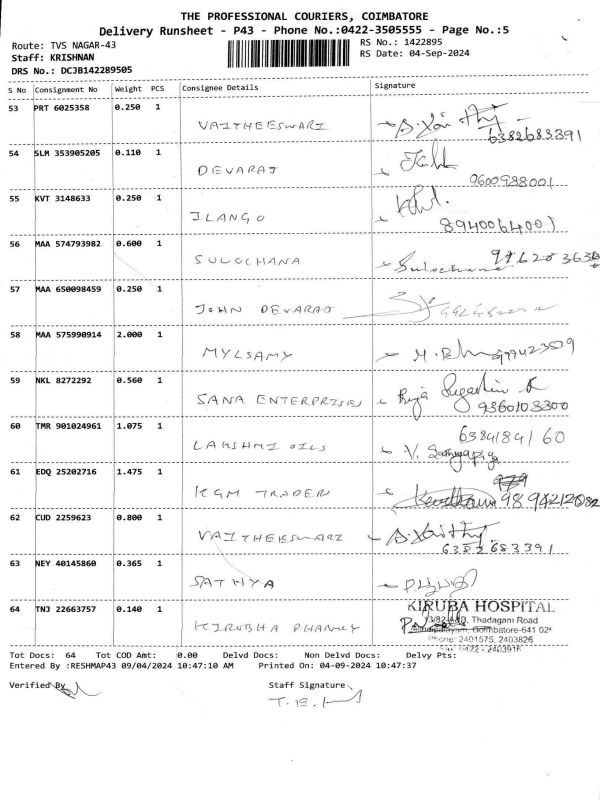 THE PROFESSIONAL COURIERS, COIMBATORE
Delivery Runsheet - P43 - Phone No.:0422-3505555 - Page No.:5
Route: TVS NAGAR-43 RS No.: 1422895
Staff: KRISHNAN RS Date: 04-Sep-2024
DRS No.: DCJB142289505
S No Consignment No Weight PCS Consignee Details Signature
53 PRT 6025358 0.250 1
VAITHEESWARI
6382683391
54 SLM 353905205 0.110 1
DEVARAJ
9600988001
55 KVT 3148633 0.250 1
ILANGO
8940064001
56 MAA 574793982 0.600 1
SULOCHANA Sulochana
57 MAA 650098459 0.250 1
JOHN DEVARAJ
58 MAA 575990914 2.000 1
MYLSAMY
59 NKL 8272292 0.560 1
SANA ENTERPRISES
9360103300
60 TMR 901024961 1.075 1
6384184160
LAKSHMI OILS
61 EDQ 25202716 1.475 1
KGM TRADER
62 CUD 2259623 0.800 1
VAITHEESWARI
6382683391
63 NEY 40145860 0.365 1
SATHYA
64 TNJ 22663757 0.140 1
KIRUBHA
KIRUBA HOSPITAL
Thadagam Road
Coimbatore-641 02
Phone: 2401575, 2403826
Fax: 0422 - 2403916
Tot Docs: 64 Tot COD Amt: 0.00 Delvd Docs: Non Delvd Docs: Delvy Pts:
Entered By :RESHMAP43 09/04/2024 10:47:10 AM Printed On: 04-09-2024 10:47:37
Verified By Staff Signature